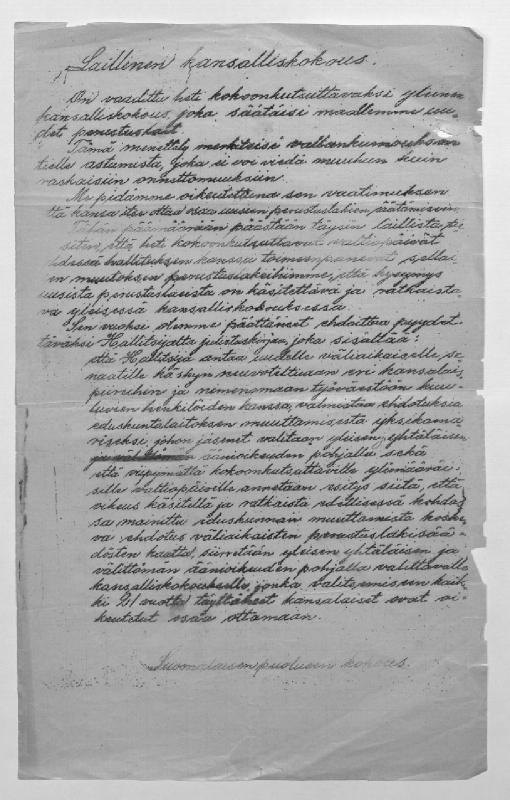 Laillinen kansalliskokous.
On vaadittu heti kokoonkutsuttavaksi yleinen
kansalliskokous, joka säätäisi maallemme uu-
det perustuslait.
Tämä menettely merkitsisi vallankumouksen
tielle astumista, joka ei voi viedä muuhun kuin
raskaisiin onnettomuuksiin.
Me pidämme oikeutettuna sen vaatimuksen
että kansa itse ottaa osaa uusien perustuslakien säätämiseen.
Tähän päämäärään päästään täysin laillista tie-
sitän, että heti kokoonkutsuttavat valtiopäivät
yhdessä hallituksen kanssa toimeenpanevat sellai-
sen muutoksen perustuslakeihimme, että kysymys
uusista perustuslaeista on käsitettävä ja ratkaista-
va yleisessä kansalliskokouksessa.
Sen vuoksi olemme päättäneet ehdottaa pyydet-
täväksi Hallitsijalta julistuskirjaa, joka sisältää:
että Hallitsija antaa uudelle väliaikaiselle se-
naatille käskyn neuvoteltuaan eri kansalais-
piireihin ja nimenomaan työväestöön kuu-
luvien henkilöiden kanssa, valmistaa ehdotuksia
eduskuntalaitoksen muuttamisesta yksikama-
riseksi, johon jäsenet valitaan yleisen, yhtäläisen
ja äänioikeuden pohjalla sekä
että viipymättä kokoonkutsuttaville ylimääräi-
sille valtiopäiville annetaan esitys siitä, että
oikeus käsitellä ja ratkaista edellisessä kohdas-
sa mainittu eduskunnan muuttamista koske-
va ehdotus väliaikaisten perustuslakisää-
dösten kautta, siirretään yleisen yhtäläisen ja
välittömän äänioikeuden pohjalla valittavalle
kansalliskokoukselle, jonka valitsemiseen kaik-
ki 21 vuotta täyttäneet kansalaiset ovat oi-
keutetut osaa ottamaan.
Suomalaisen puolueen kokous.